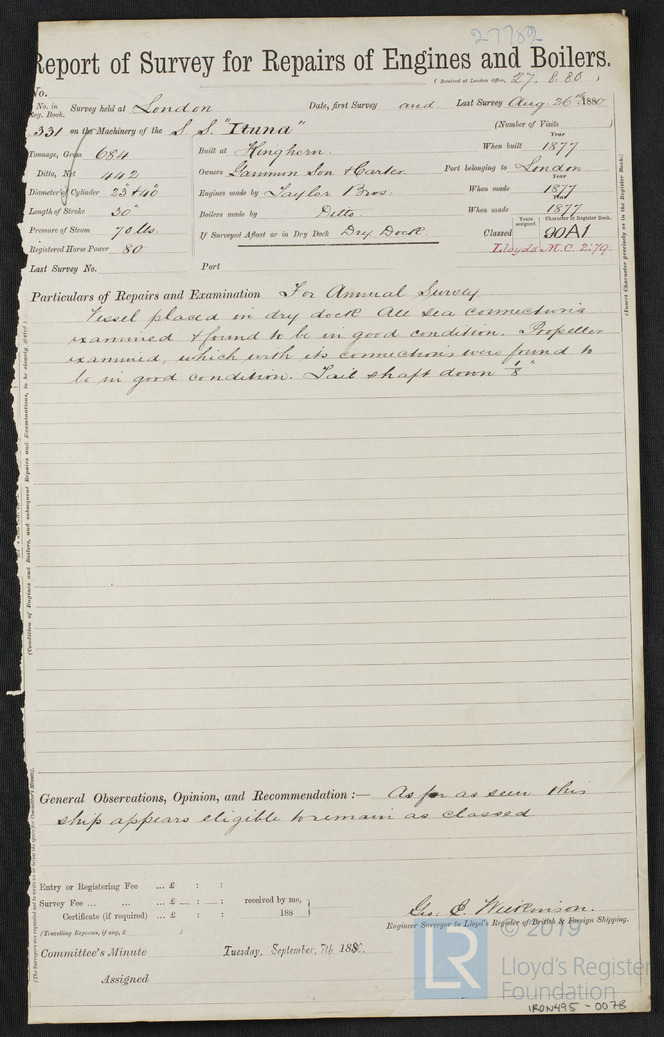 27782
Report of Survey for Repairs of Engines and Boilers.
(Received at London Office, 27.8.80)
No.
No. in Reg. Book. Survey held at London Date, first Survey and Last Survey Aug. 26th 1880
331 on the Machinery of the S. S. "Ituna" (Number of Visits
Tonnage, Gross 684 Built at Kinghorn When built Year 1877
Ditto, Net 442 Owners Gammon Son & Carter Port belonging to London
Diameter of Cylinder 23" & 40" Engines made by Taylor Bros. When made Year 1877
Length of Stroke 30" Boilers made by Ditto When made Year 1877
Pressure of Steam 70 lbs If Surveyed Afloat or in Dry Dock Dry Dock Classed Years assigned. Character in Register Book. 90A1
Registered Horse Power 80 Lloyds M.C. 2.79
Last Survey No. Port
(Insert Character precisely as in the Register Book.)
Particulars of Repairs and Examination For Annual Survey
Vessel placed in dry dock All sea connections
examined & found to be in good condition. Propeller
examined, which with its connections were found to
be in good condition. Tail shaft down 1/8"
(Condition of Engines and Boilers, and subsequent Repairs and Examinations, to be clearly stated)
General Observations, Opinion, and Recommendation :— As far as seen this
ship appears eligible to remain as classed
Entry or Registering Fee ... £ : :
Survey Fee ... ... ... £ — : — : received by me,
Certificate (if required) ... £ : : 188
(Travelling Expenses, if any, £ )
Geo. Wilkinson.
Engineer Surveyor to Lloyd's Register of British & Foreign Shipping.
Committee's Minute Tuesday, September, 7th 1880.
Assigned
LR © 2019
Lloyd's Register
Foundation
IRON495-0078